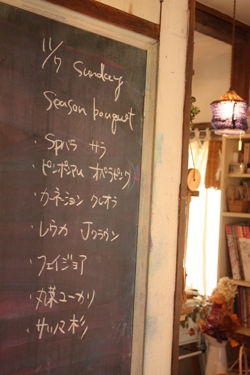 11/7 Sunday
Season bouquet
・SPバラ サラ
・ピンポンマム オペラピンク
・カーネーション クレオラ
・レウカ Jクラウン
・フェイジョア
・丸葉ユーカリ
・サツマ杉